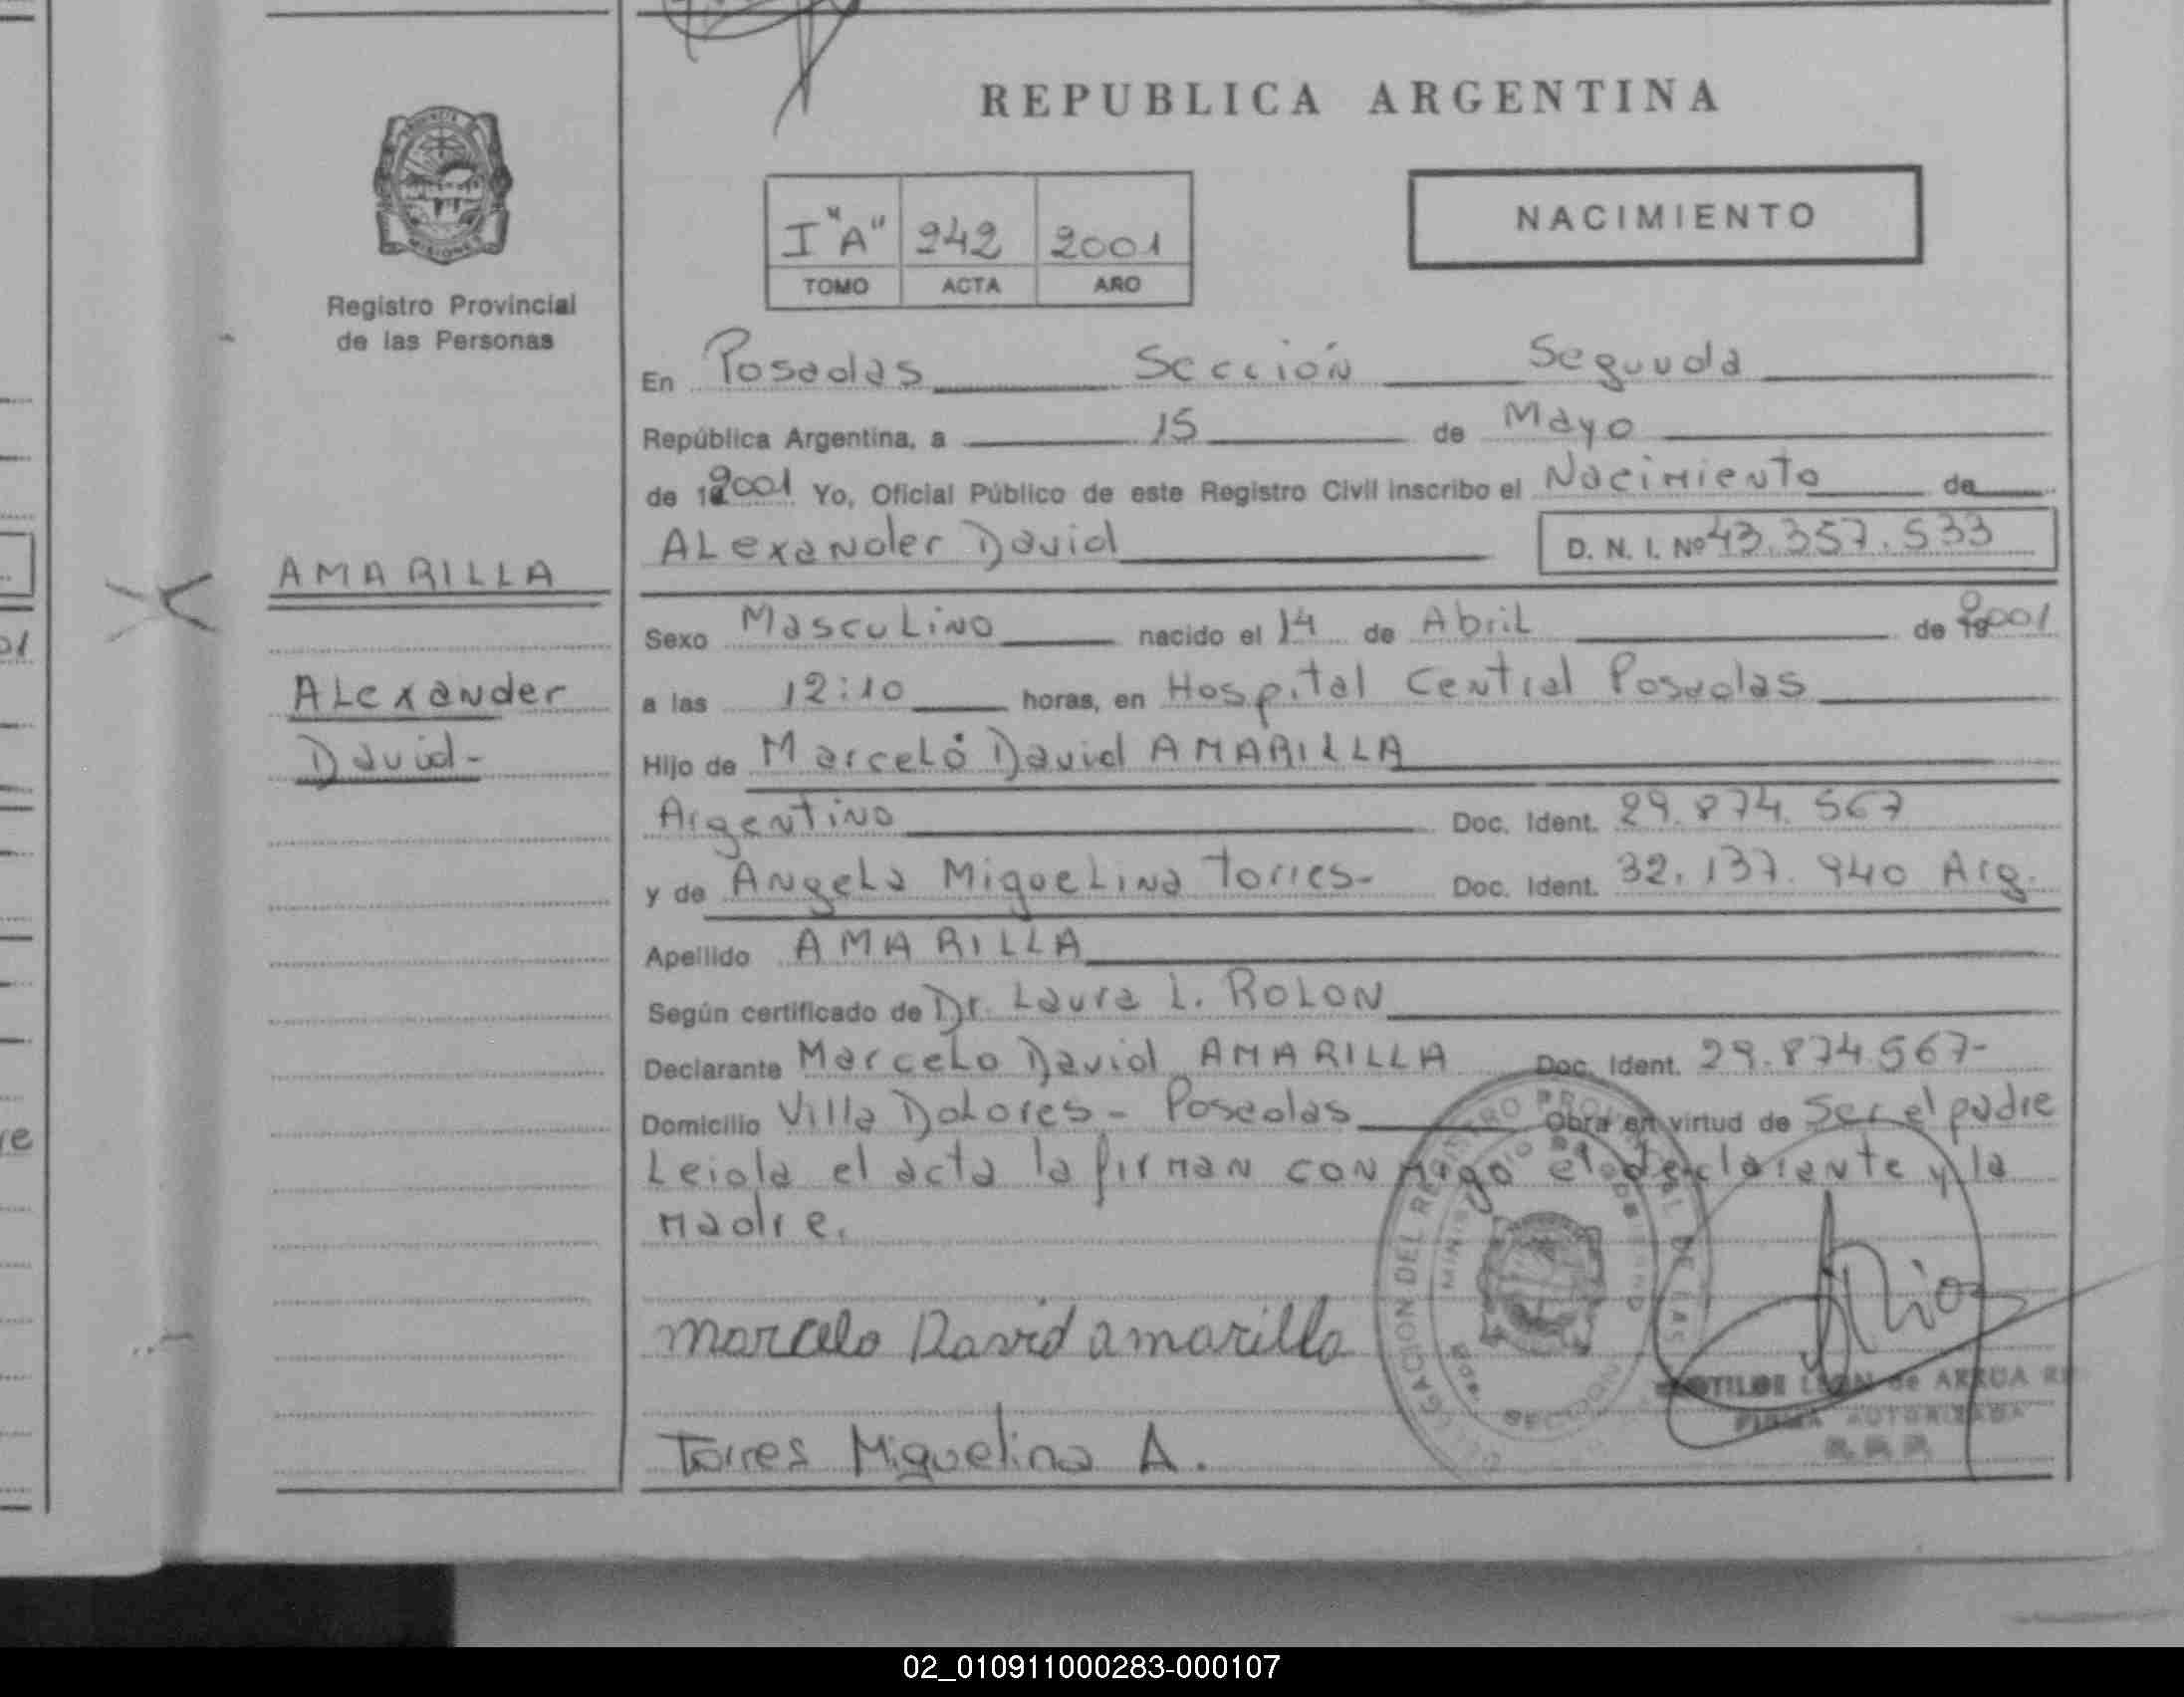 REPUBLICA ARGENTINA
NACIMIENTO
I "A" 242 2001
TOMO ACTA AÑO
Registro Provincial
de las Personas
En Posadas Sección Segunda
República Argentina, a 15 de Mayo
de 2001 Yo, Oficial Público de este Registro Civil inscribo el Nacimiento de
ALexander David D. N. I. Nº 43.357.533
AMARILLA
ALexander
David-
Sexo MascuLino nacido el 14 de AbriL de 2001
a las 12:10 horas, en Hospital Central Posadas
Hijo de MarceLo David AMARILLA
Argentino Doc. Ident. 29.874.567
y de AngeLa MigueLina Torres- Doc. Ident. 32.137.940 Arg.
Apellido AMARILLA
Según certificado de Dr. Laura L. ROLON
Declarante MarceLo David AMARILLA Doc. Ident. 29.874.567-
Domicilio Villa DoLores - Posadas Obra en virtud de Ser el padre
Leida el acta la firman conmigo el declarante y la
madre.
Marcelo David amarilla
Torres Miguelina A.
DELEGACION DEL REGISTRO PROVINCIAL DE LAS
SECCION
de ARRUA
FIRMA AUTORIZADA
02_010911000283-000107